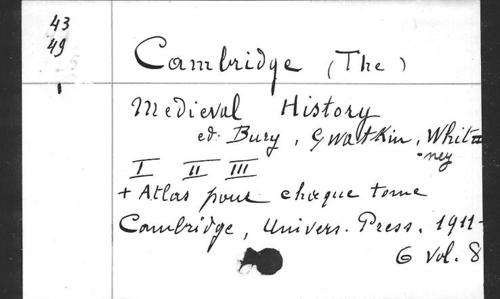 43
49
Cambridge (The)
Medieval History
ed. Bury, Gwatkin, Whit=
-ney
I II III
+ Atlas pour chaque tome
Cambridge, Univers. Press. 1911-
6 vol. 8